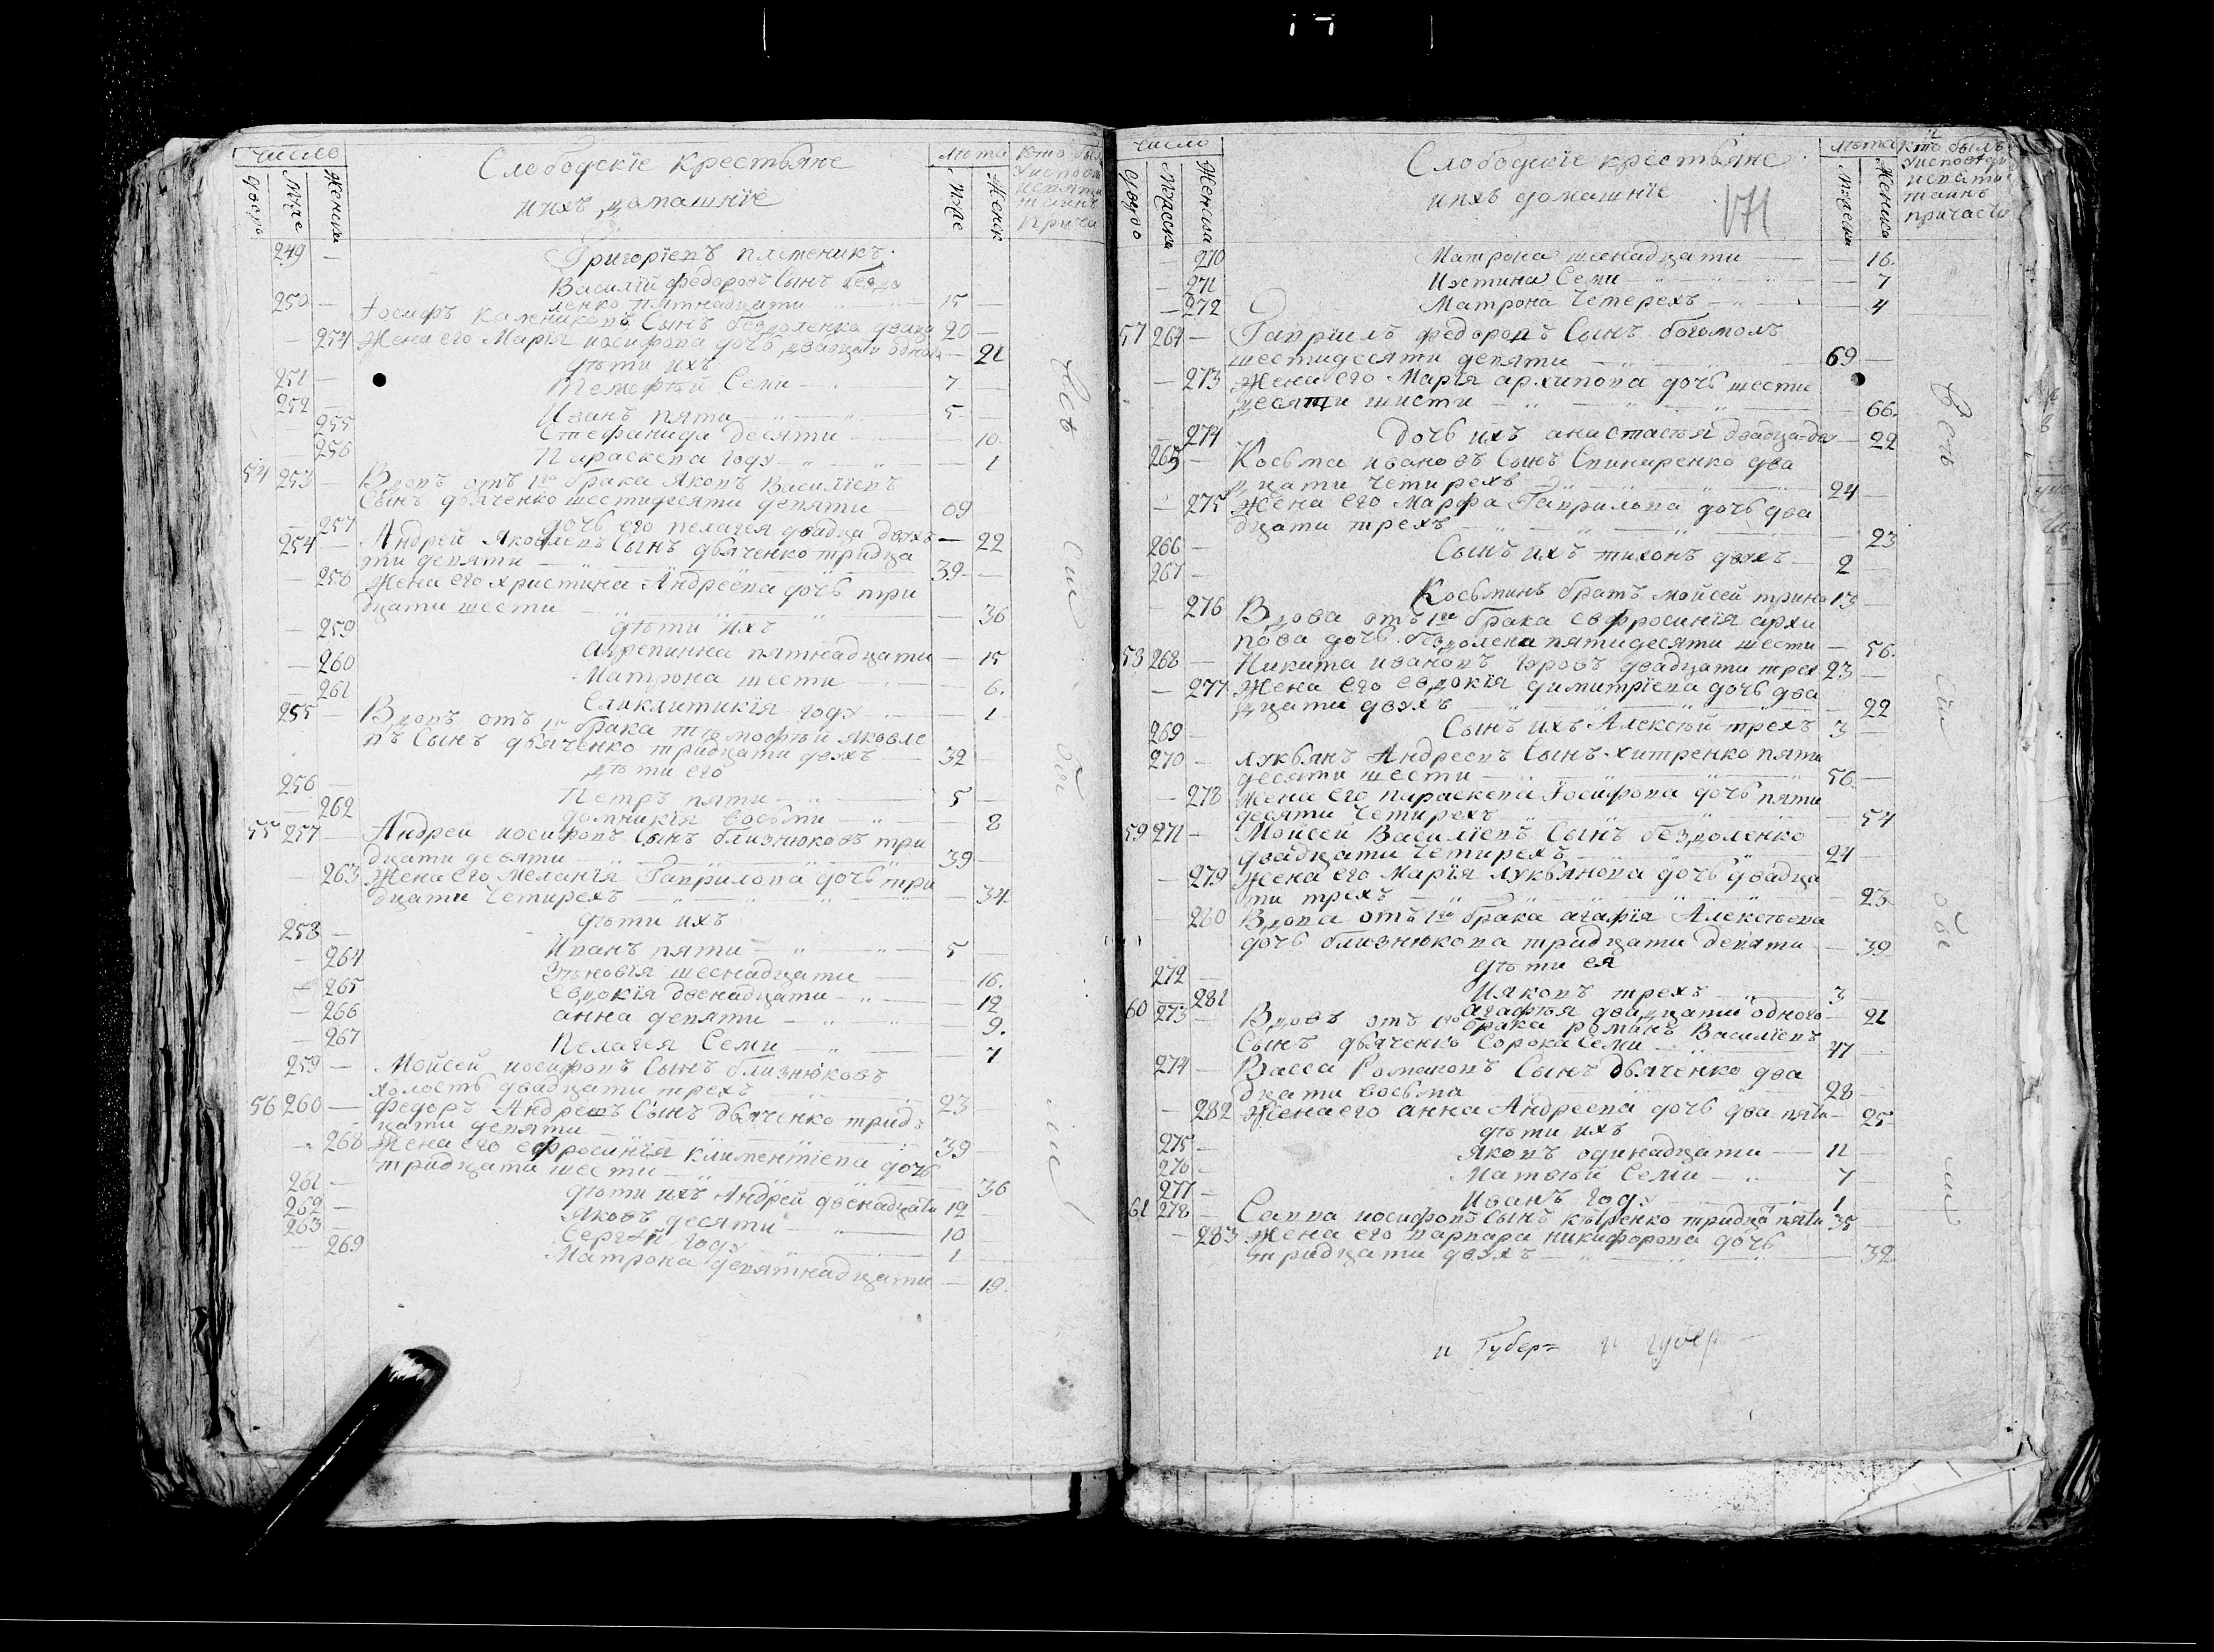 число
Слободскїе крестьяне
лѣта
кто был
дворъ
Муже
Женска
ихъ домашнїе
Муже
Женск
249 — Григорїевъ племеникъ
Василїй федоровъ Сынъ бездо
250 — ленко пятнадцати 15 —
Іосифъ Калениковъ Сынъ бездоленко двадца 20 —
— 254 Жена его Марїя иосифова дочь двадцати одного — 21
дѣти ихъ
251 — Тимофѣй Семи 7
252 — Иванъ пяти 5 —
— 255 Стефанида десяти 10
— 256 Параскева году — 1
54 253 — Вдовъ отъ 1го брака Яковъ Василїевъ
Сынъ дьяченко шестидесяти девяти 69
— 257 дочь его пелагея двадца двухъ — 22
254 — Андрей Яковлевъ Сынъ дьяченко тридца
ти девяти 39 —
— 258 Жена его христина Андреева дочь три
дцати шести — 36
дѣти ихъ
— 259 Агрепинна пятнадцати — 15
— 260 Матрона шести — 6
— 261 Сикликитикїя году — 1
255 — Вдовъ отъ 1го брака тимофѣй яковле
въ Сынъ дьяченко тридцати двухъ 32
дѣти его
256 — Петръ пяти 5 —
— 262 домникїя восьми — 8
55 257 — Андрей иосифовъ Сынъ близнюковъ три
дцати девяти 39 —
— 263 Жена его Меланїя Гаврилова дочь три
дцати Четирехъ — 34
дѣти ихъ
258 — Иванъ пяти 5 —
— 264 Зѣновїя шеснадцати — 16
— 265 евдокїя двенадцати — 12
— 266 анна девяти 9
— 267 Пелагея Семи — 7
259 — Мойсей иосифовъ Сынъ близнюковъ
холостъ двадцати трехъ 23 —
56 260 — федоръ Андреевъ Сынъ дьяченко трид
цати девяти 39 —
— 268 Жена его ефросинїя климентїева дочь
тридцати шести — 36
261 — дѣти ихъ Андрей двенадцати 12
262 — Яковъ десяти 10 —
263 — Сергѣй году 1 —
— 269 Матрона девятнадцати — 19
Всѣ
сии
бы
ли
число
Слободскїе крестьяне
лѣта
кто былъ
у исповѣди
и святы
таинъ
причасти
дворъ
Мужска
Женска
ихъ домашнїе
171
Мужска
Женска
— 270 Матрона шеснадцати — 16
— 271 Иустина Семи — 7
— 272 Матрона Четерехъ — 4
57 264 — Гаврїилъ федоровъ Сынъ богомолъ
шестидесяти девяти 69 —
— 273 Жена его Марїя архипова дочь шести
десяти шисти 66
— 274 дочь ихъ анастасїя двадца-два — 22
265 — Косьма ивановъ Сынъ Спинаренко два
дцати Четирехъ 24 —
— 275 Жена его Марфа Гаврилова дочь два
дцати трехъ — 23
266 — Сынъ ихъ тихонъ двухъ 2 —
267 — Косьминъ братъ мойсей трина 13 —
— 276 Вдова отъ 1го брака евфросинїя архи
пова дочь бездолена пятидесяти шести — 56
58 268 — Никита ивановъ двадцати трех 23 —
— 277 Жена его евдокїя димитрїева дочь два
дцати двухъ — 22
269 — Сынъ ихъ Алексѣй трехъ 3 —
270 — Лукьянъ Андреевъ Сынъ хитренко пяти
десяти шести 56 —
— 278 Жена его параскева Іосифова дочь пяти
десяти Четирехъ 54
59 271 — Мойсей Василїевъ Сынъ бездоленко
двадцати Четирехъ 24 —
— 279 Жена его Марїя лукьянова дочь двадца
ти трехъ — 23
— 280 Вдова отъ 1го брака агафїя Алексѣева
дочь близнюкова тридцати девяти — 39
дѣти ея
272 — Ияковъ трехъ 3
— 281 агафья двадцати одного — 21
60 273 — Вдовъ отъ 1го брака романъ Василїевъ
Сынъ дьяченко Сорока Семи 47
274 — Васса Романовъ Сынъ дьяченко два
дцати восьма 28 —
— 282 Жена его анна Андреева дочь два пяти — 25
дѣти ихъ
275 — Яковъ одинадцати 11
276 — Матвѣй Семи 7
277 — Иванъ году 1
61 278 — Савва иосифовъ Сынъ тридца пяти 35 —
— 283 Жена его варвара никифорова дочь
тридцати двухъ — 32
Всѣ
сии
бы
ли
и Губер= и губер—